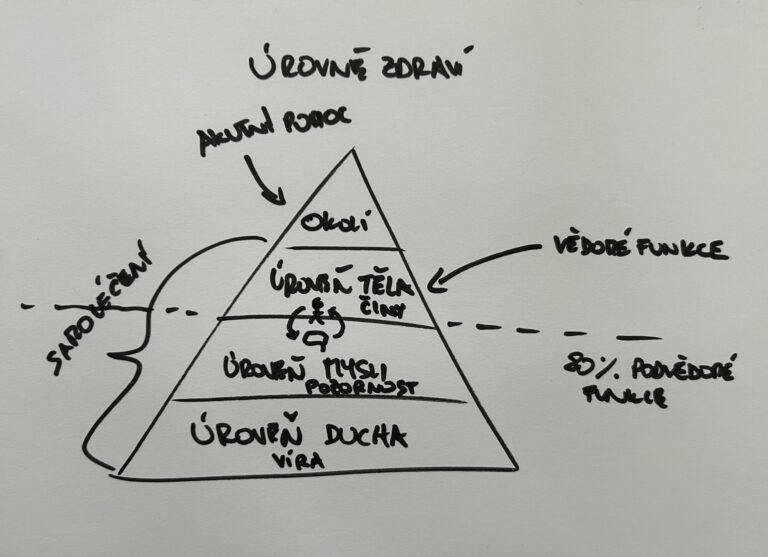 ÚROVNĚ ZDRAVÍ
AKUTNÍ POMOC
OKOLÍ
VĚDOMÉ FUNKCE
ÚROVEŇ TĚLA
ČINY
SAMOLÉČENÍ
ÚROVEŇ MYSLI
POZORNOST
80% PODVĚDOMÉ
FUNKCE
ÚROVEŇ DUCHA
VÍRA